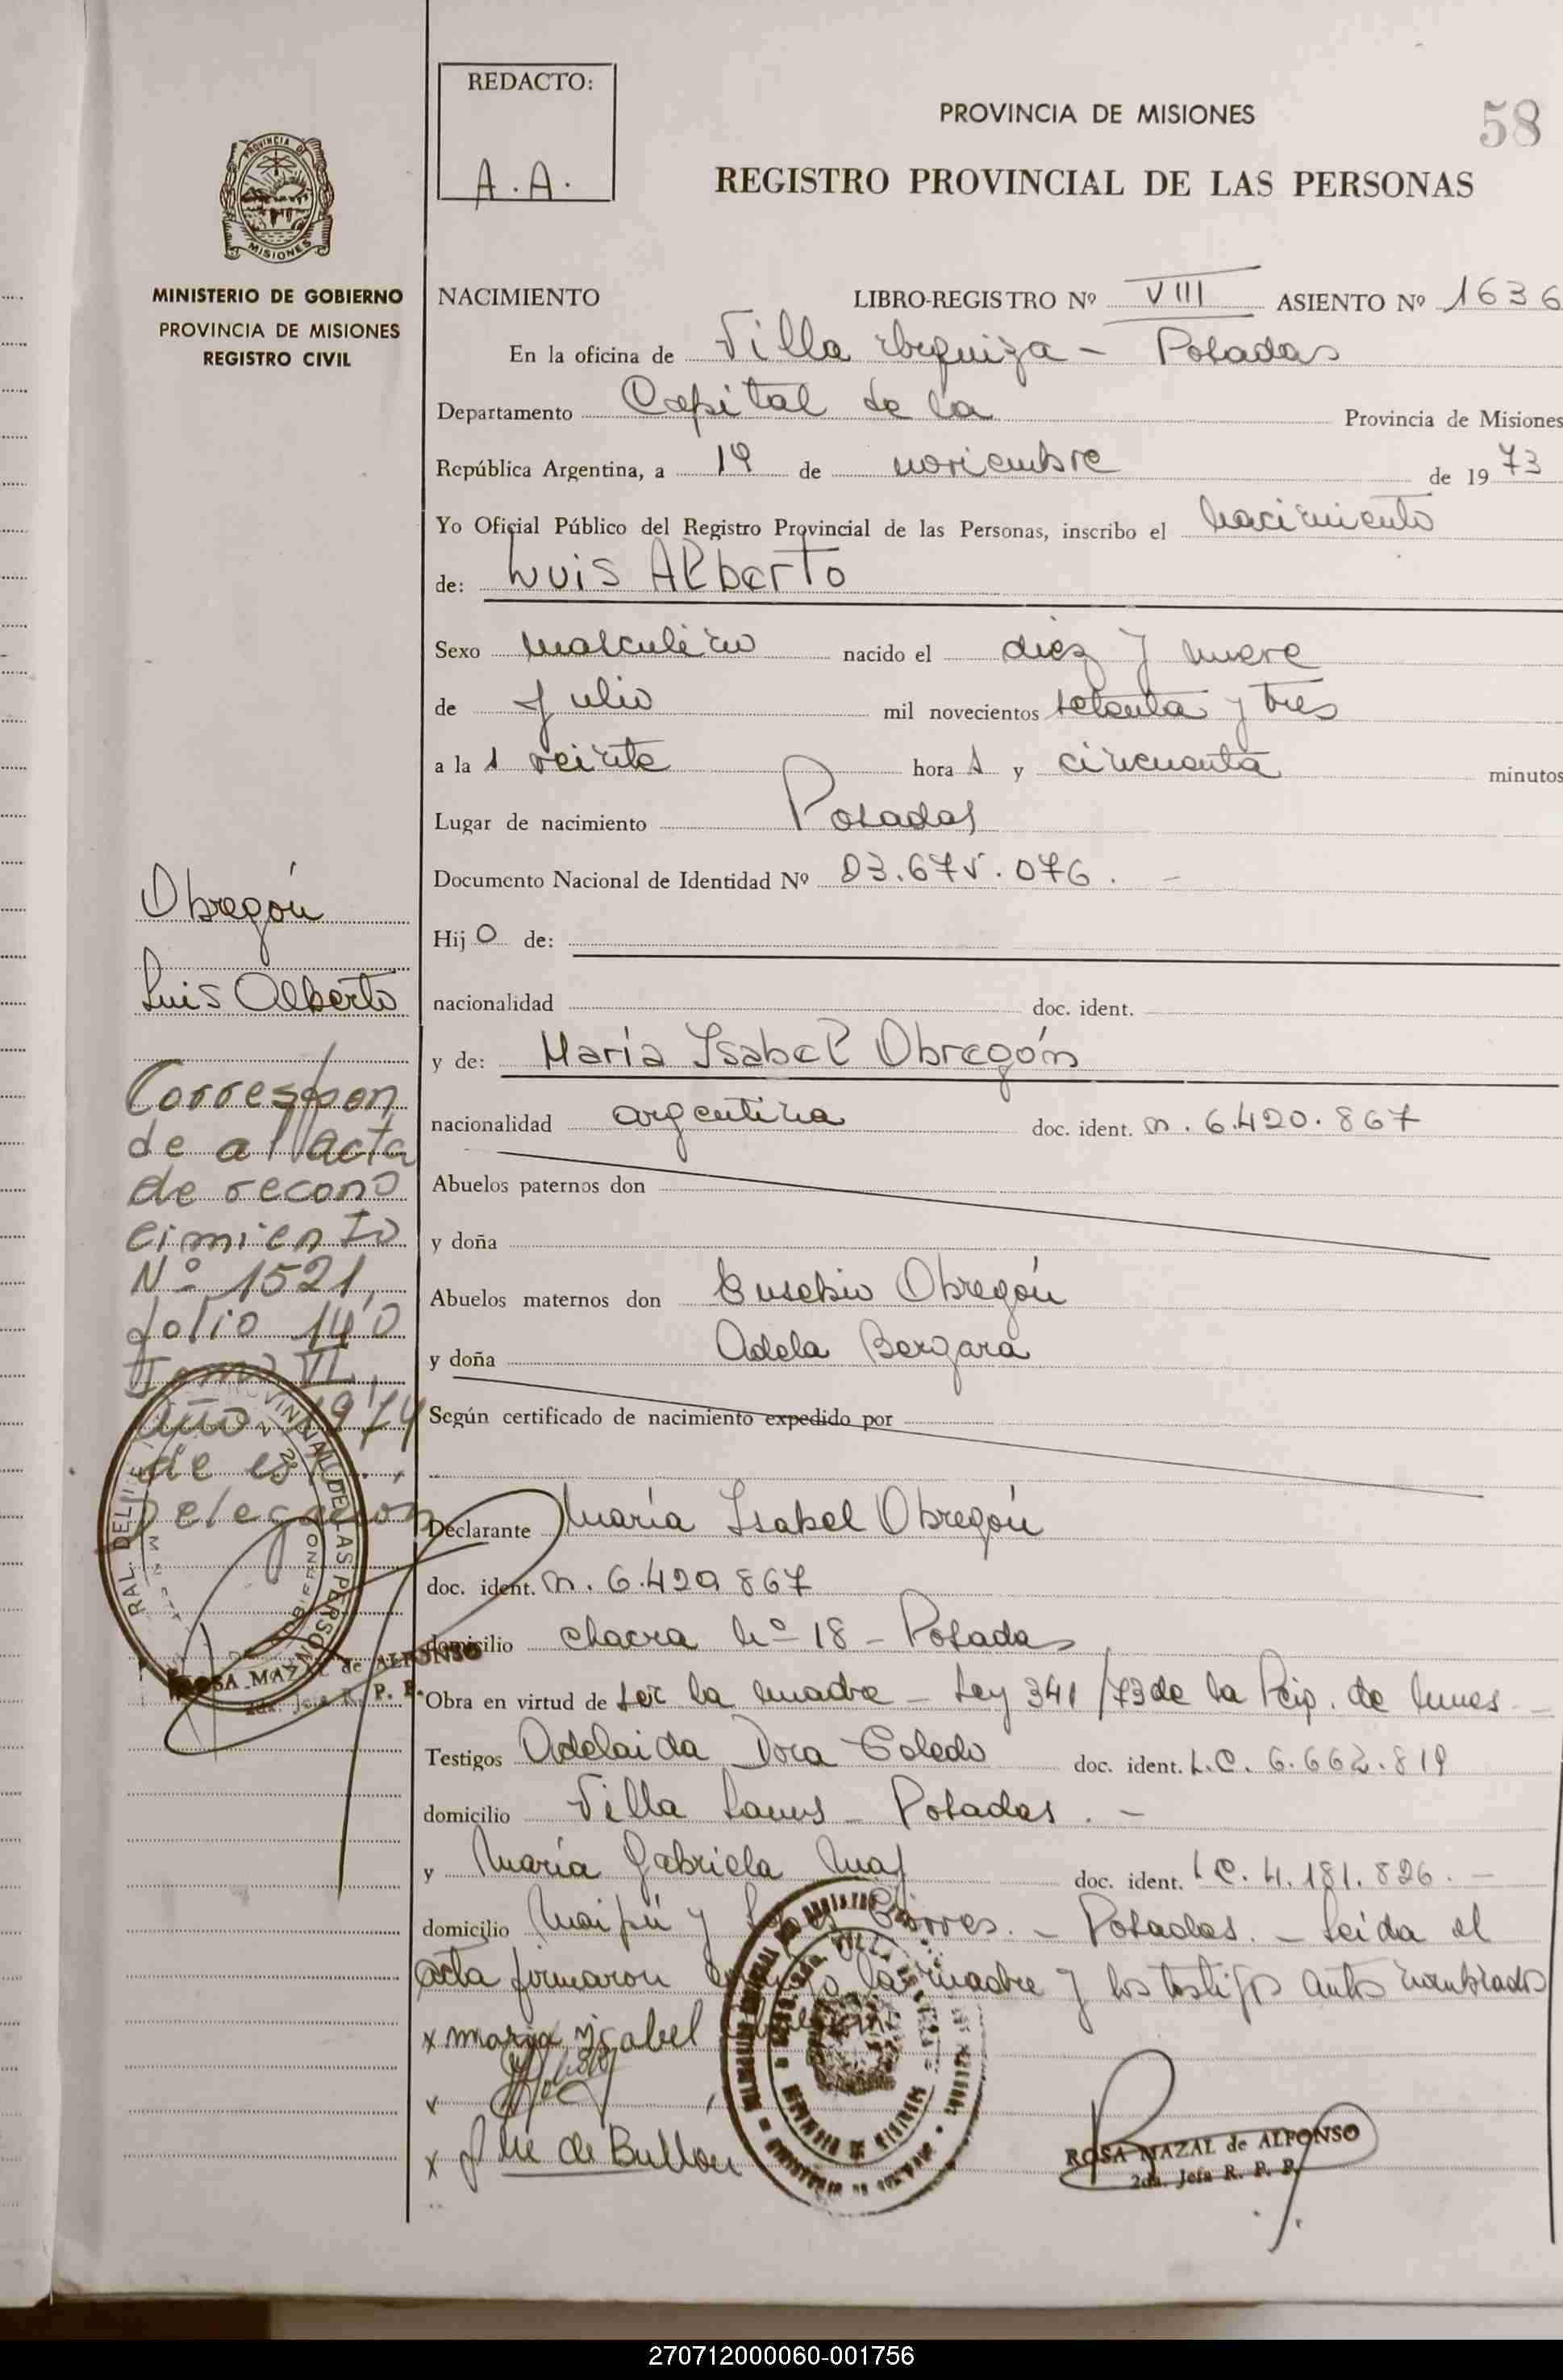 REDACTO:
A.A.
PROVINCIA DE MISIONES
58
REGISTRO PROVINCIAL DE LAS PERSONAS
PROVINCIA DE
MISIONES
MINISTERIO DE GOBIERNO
PROVINCIA DE MISIONES
REGISTRO CIVIL
NACIMIENTO LIBRO-REGISTRO Nº VIII ASIENTO Nº 1636
En la oficina de Villa Urquiza - Posadas
Departamento Capital de la Provincia de Misiones
República Argentina, a 19 de noviembre de 1973
Yo Oficial Público del Registro Provincial de las Personas, inscribo el nacimiento
de: Luis Alberto
Sexo masculino nacido el diez y nueve
de Julio mil novecientos setenta y tres
a la s veinte hora s y cincuenta minutos
Lugar de nacimiento Posadas
Documento Nacional de Identidad Nº 23.675.076. -
Hij o de:
nacionalidad doc. ident.
y de: María Isabel Obregón
nacionalidad argentina doc. ident. n. 6.420.867
Abuelos paternos don
y doña
Abuelos maternos don Eusebio Obregón
y doña Adela Bergara
Según certificado de nacimiento expedido por
Declarante María Isabel Obregón
doc. ident. n. 6.420 867
domicilio chacra nº 18 - Posadas
Obra en virtud de ser la madre - Ley 341/73 de la Pcia. de Mnes -
Testigos Adelaida Dora Toledo doc. ident. L.C. 6.662.819
domicilio Villa Lanus - Posadas. -
y María Gabriela Mas doc. ident. L.C. 4.181.826. -
domicilio Maipú y Torres. - Posadas. - Leída el
acta firmaron la madre y los testigos antes nombrados
x maria ysabel
x
x de Bullon
ROSA MAZAL de ALFONSO
2da. Jefa R. P. P.
Obregón
Luis Alberto
Correspon
de al Acta
de recono
cimiento
Nº 1521,
folio 140
Tomo VI,
Año 1974
de es
Delegación
ROSA MAZAL de ALFONSO
2da. Jefa R. P. P.
270712000060-001756